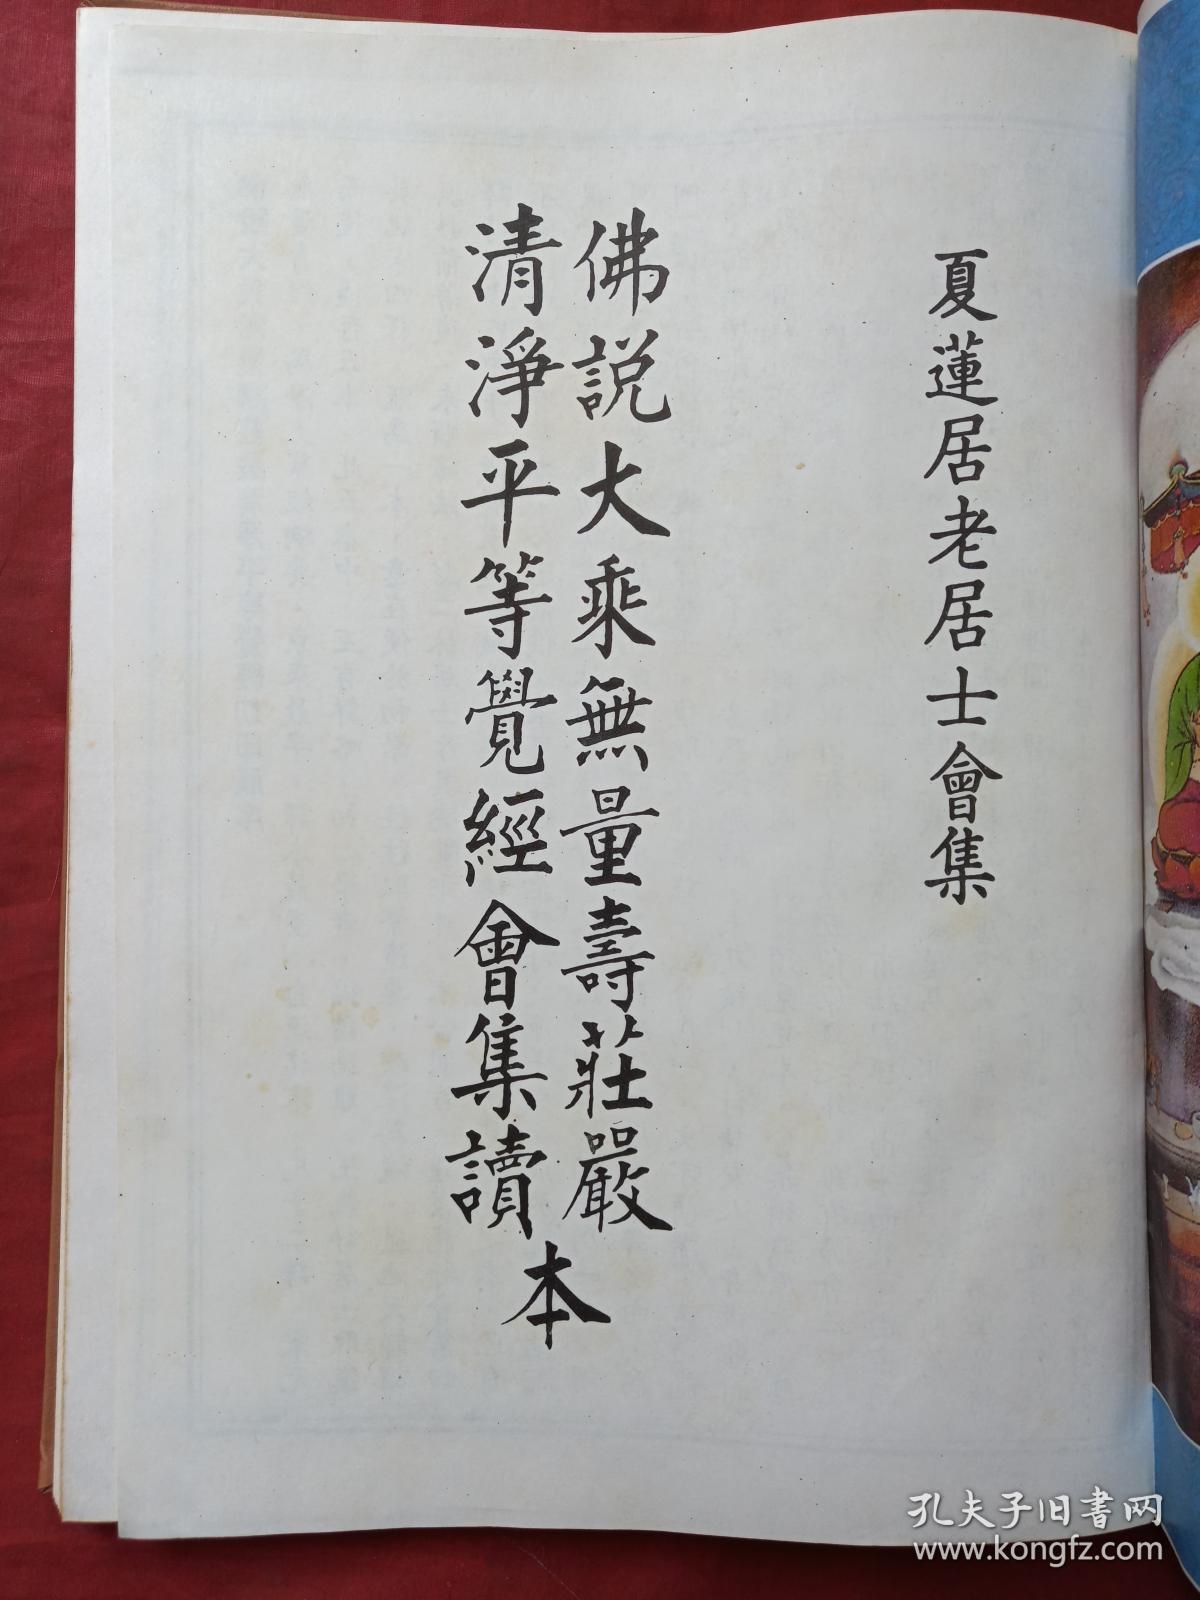 夏蓮居老居士會集
佛説大乘無量壽莊嚴
清淨平等覺經會集讀
本
孔夫子旧書网
www.kongfz.com